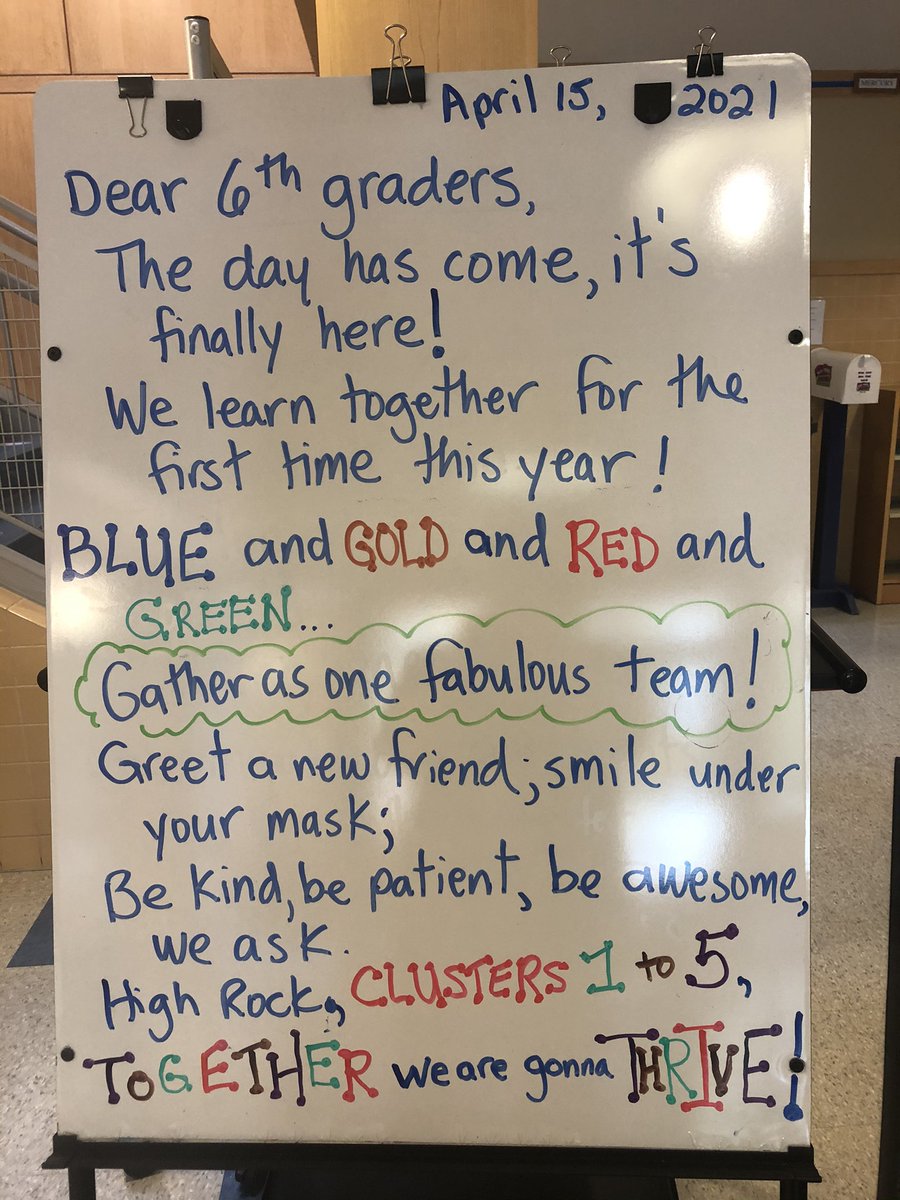 April 15, 2021
Dear 6th graders,
The day has come, it's
finally here!
We learn together for the
first time this year!
BLUE and GOLD and RED and
GREEN...
Gather as one fabulous team!
Greet a new friend; smile under
your mask;
Be kind, be patient, be awesome,
we ask.
High Rock, CLUSTERS 1 to 5,
TOGETHER we are gonna THRIVE!
MERCURY